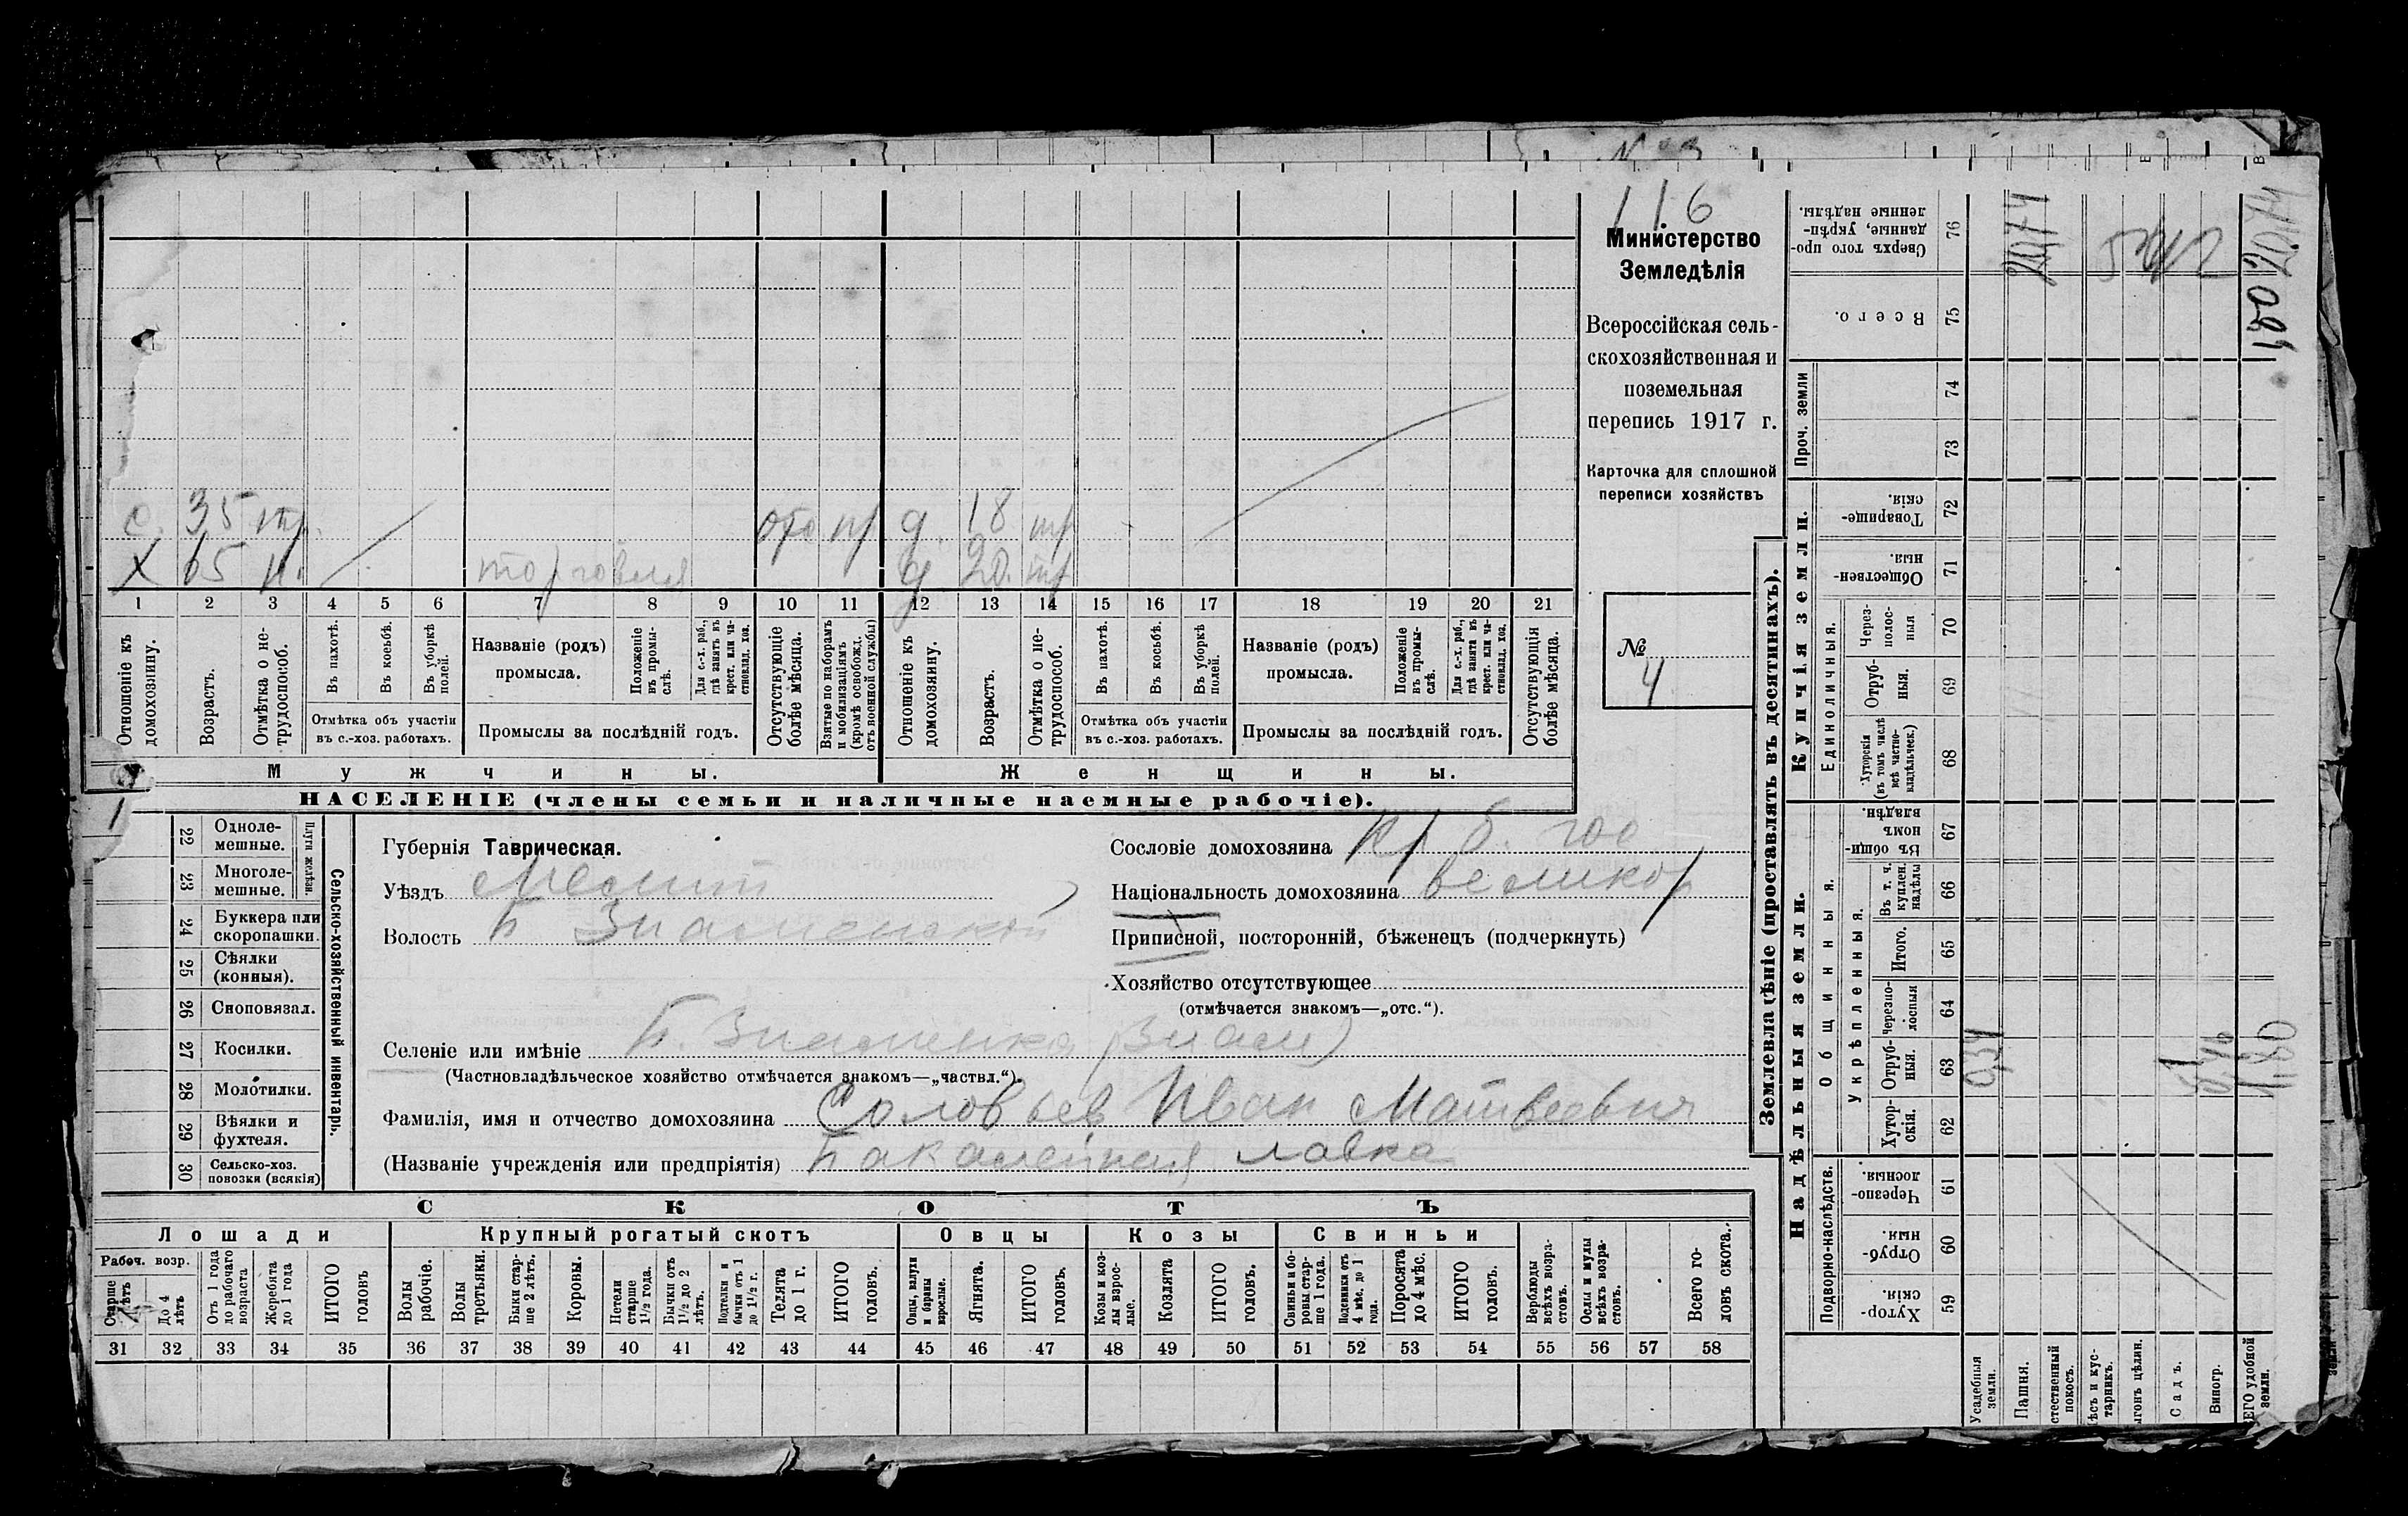 № 3
116
Министерство
Земледѣлія
Всероссійская сель-
скохозяйственная и
поземельная
перепись 1917 г.
Карточка для сплошной
переписи хозяйствъ
№
4
с. 35 тр. отс пр д. 18 тр
Х 65 н. торговля д 20. тр
1 2 3 4 5 6 7 8 9 10 11 12 13 14 15 16 17 18 19 20 21
Отношеніе къ
домохозяину.
Возрастъ.
Отмѣтка о не-
трудоспособ.
Въ пахотѣ.
Въ косьбѣ.
Въ уборкѣ
полей.
Отмѣтка объ участіи
въ с.-хоз. работахъ.
Названіе (родъ)
промысла.
Положеніе
въ промы-
слѣ.
Для с.-х. раб.,
гдѣ занятъ въ
крест. или ча-
стновлад. хоз.
Промыслы за послѣдній годъ.
Отсутствующіе
болѣе мѣсяца.
Взятые по наборамъ
и мобилизаціямъ
(кромѣ освобожд.
отъ военной службы)
Отношеніе къ
домохозяину.
Возрастъ.
Отмѣтка о не-
трудоспособ.
Въ пахотѣ.
Въ косьбѣ.
Въ уборкѣ
полей.
Отмѣтка объ участіи
въ с.-хоз. работахъ.
Названіе (родъ)
промысла.
Положеніе
въ промы-
слѣ.
Для с.-х. раб.,
гдѣ занята въ
крест. или ча-
стновлад. хоз.
Промыслы за послѣдній годъ.
Отсутствующія
болѣе мѣсяца.
Мужчины.
Женщины.
НАСЕЛЕНІЕ (члены семьи и наличные наемные рабочіе).
1
22 Одноле-
мешные.
23 Многоле-
мешные.
Плуги желѣзн.
24 Буккера или
скоропашки.
25 Сѣялки
(конныя).
26 Сноповязал.
27 Косилки.
28 Молотилки.
29 Вѣялки и
фухтеля.
30 Сельско-хоз.
повозки (всякія)
Сельско-хозяйственный инвентарь.
Губернія Таврическая.
Уѣздъ Мелит
Волость Б Знаменской
Сословіе домохозяина кр б. гос
Національность домохозяина великор
Приписной, посторонній, бѣженецъ (подчеркнуть)
Хозяйство отсутствующее
(отмѣчается знакомъ—„отс.“).
Селеніе или имѣніе Б. Знаменка (Знам)
(Частновладѣльческое хозяйство отмѣчается знакомъ—„частвл.“).
Фамилія, имя и отчество домохозяина Соловьев Иван Матвеевич
(Названіе учрежденія или предпріятія) Бакалейная лавка
СКОТЪ
Лошади
Крупный рогатый скотъ
Овцы
Козы
Свиньи
Рабоч. возр.
Старше
лѣтъ
До 4
лѣтъ
Отъ 1 года
до рабочаго
возраста
Жеребята
до 1 года
ИТОГО
головъ
Волы
рабочіе.
Волы
третьяки.
Быки стар-
ше 2 лѣтъ.
Коровы.
Нетели
старше
1½ года.
Бычки отъ
1½ до 2
лѣтъ.
Подтелки и
бычки отъ 1
до 1½ г.
Телята
до 1 г.
ИТОГО
головъ.
Овцы, валухи
и бараны
взрослые.
Ягнята.
ИТОГО
головъ.
Козы и коз-
лы взрос-
лые.
Козлята
ИТОГО
головъ.
Свиньи и бо-
ровы стар-
ше 1 года.
Подсвинки отъ
4 мѣс. до 1
года.
Поросята
до 4 мѣс.
ИТОГО
головъ.
Верблюды
всѣхъ возра-
стовъ.
Ослы и мулы
всѣхъ возра-
стовъ.
Всего го-
ловъ скота.
31 32 33 34 35 36 37 38 39 40 41 42 43 44 45 46 47 48 49 50 51 52 53 54 55 56 57 58
Землевладѣніе (проставлять въ десятинахъ).
Надѣльныя земли.
Купчія земли.
Проч. земли
Подворно-наслѣдств.
Общинныя.
Укрѣпленныя.
Единоличныя.
Хутор-
скія. 59
Отруб-
ныя. 60
Черезпо-
лосныя 61
Хутор-
скія. 62
Отруб-
ныя. 63
Черезпо-
лосныя 64
Итого. 65
Въ т. ч.
куплен.
надѣлы 66
Въ общи-
номъ
владѣн. 67
Хуторскія
(въ томъ числѣ
всѣ частно-
владѣльческ.) 68
Отруб-
ныя. 69
Через-
полос-
ныя 70
Обществен-
ныя. 71
Товарище-
скія. 72
73
74
Всего. 75
Сверхъ того про-
данные, укрѣп-
ленные надѣлы. 76
Усадебныя
земли.
Пашня.
стественный
покосъ.
ѣсъ и кус-
тарникъ.
ыгонъ цѣлин.
Садъ.
Виногр.
ЕГО удобной
земли.
20,74
20,74